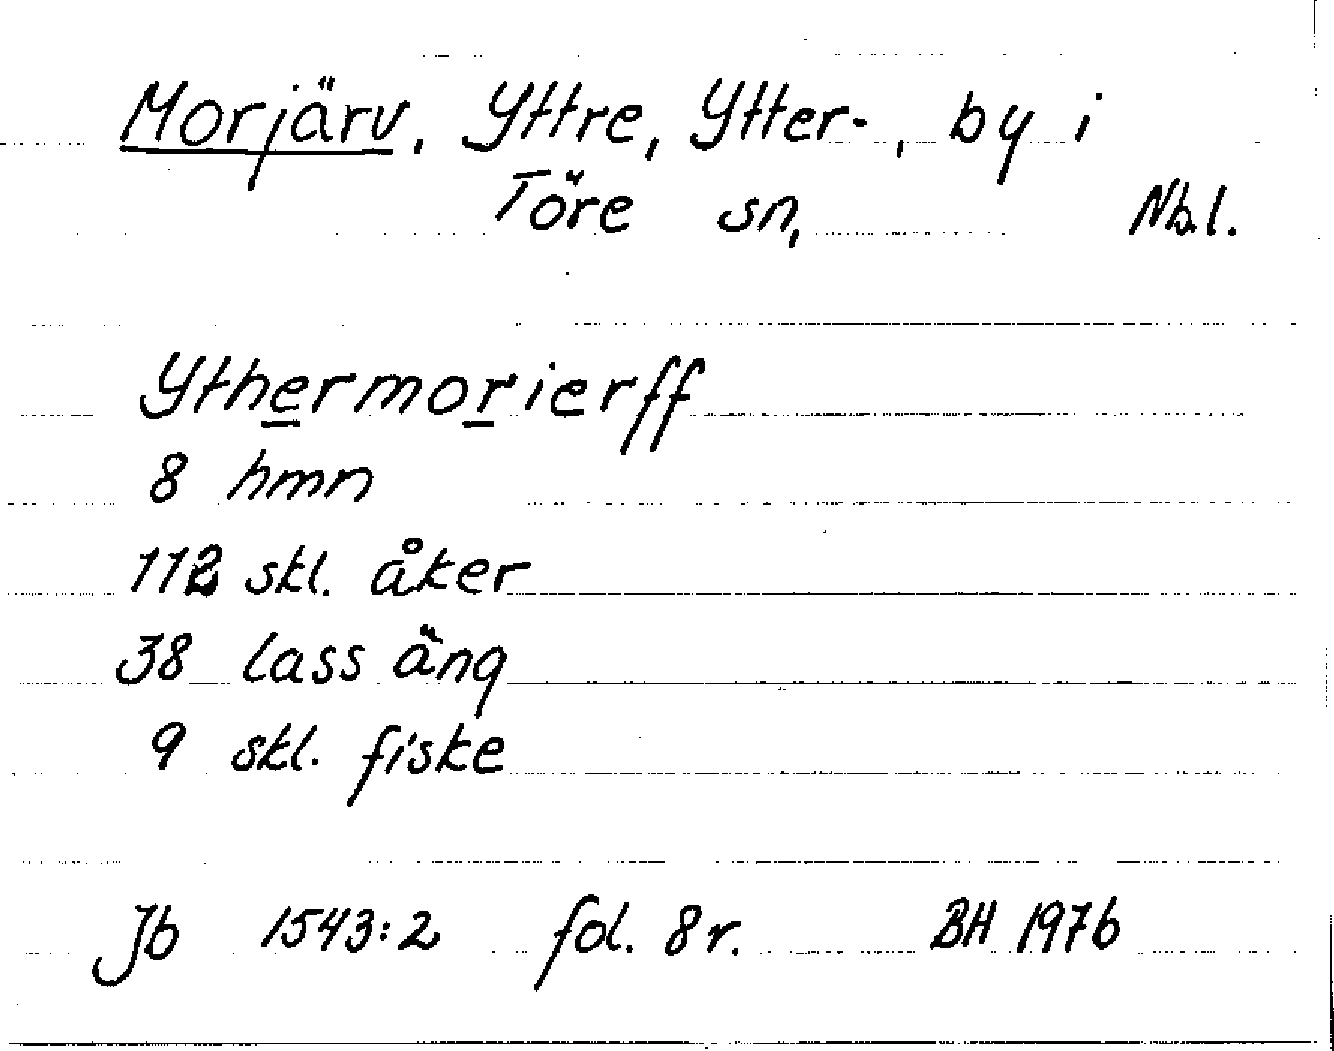 Morjärv, Yttre, Ytter-, by i
Töre sn, Nb.l.
Ythermorierff
8 hmn
112 skl. åker
38 lass äng
9 skl. fiske
Jb 1543:2 fol. 8 r. BH 1976